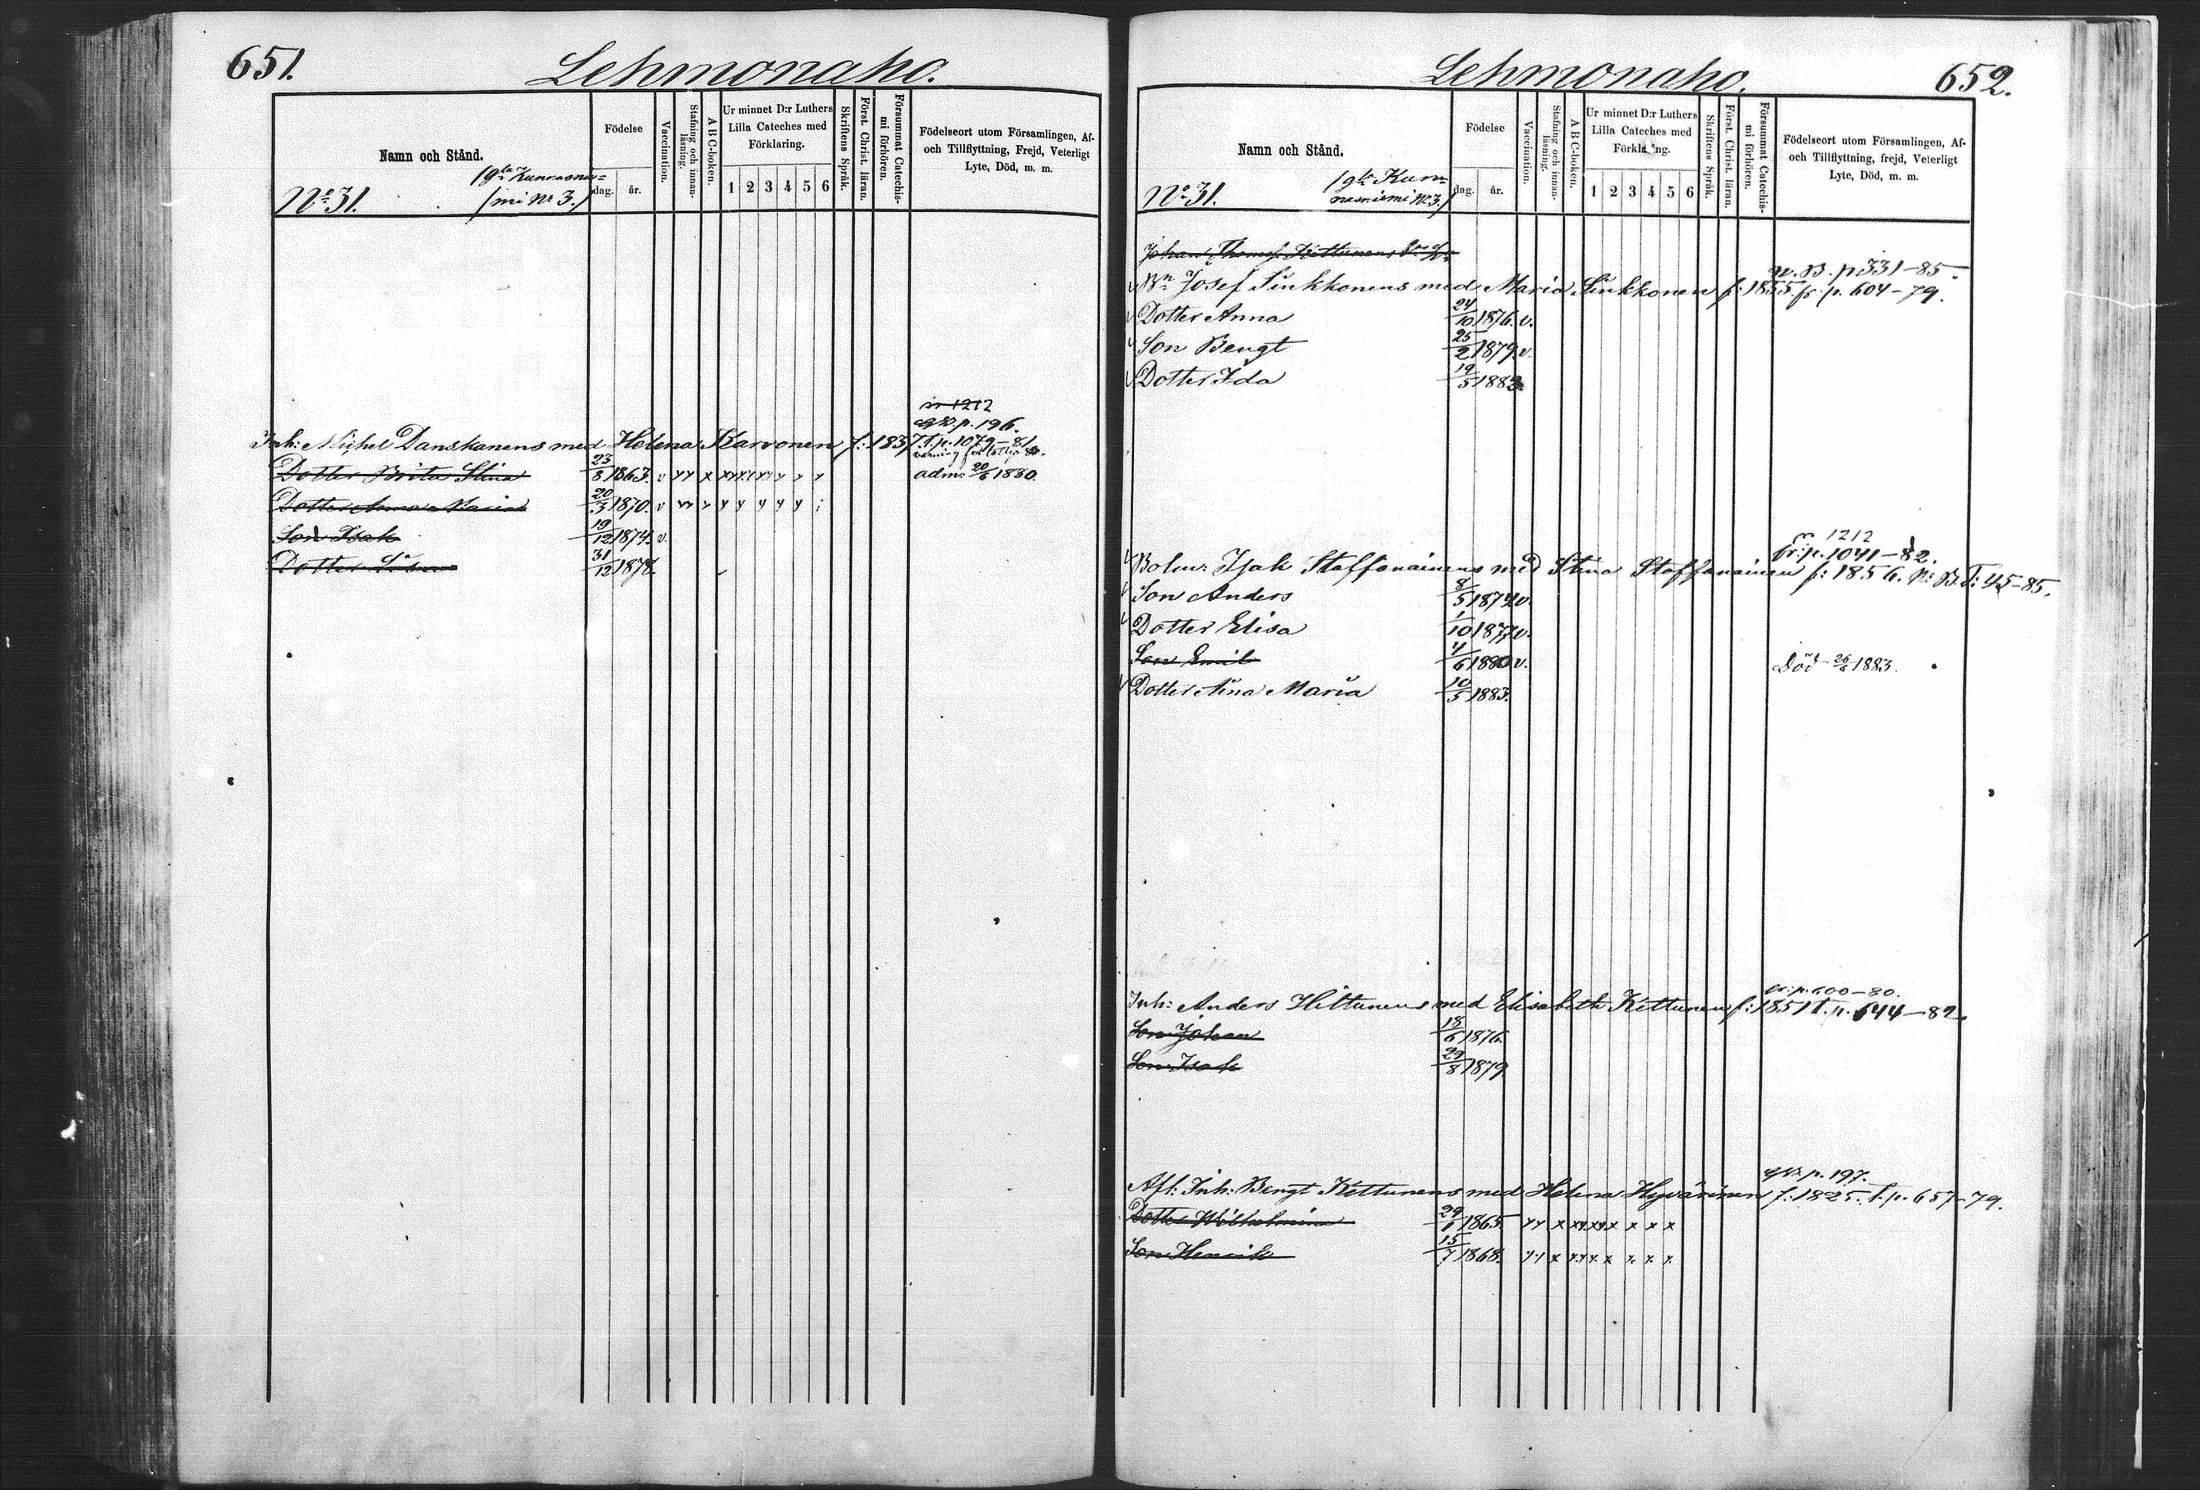 651.
Lehmonaho.
Namn och Stånd.
Födelse
dag.
år.
Vaccination.
Stafning och innanläsning.
A B C-boken.
Ur minnet D:r Luthers
Lilla Cateches med
Förklaring.
1 2 3 4 5 6
Skriftens Språk.
Först. Christ. läran.
Försummat Catechis-
mi förhören.
Födelseort utom Församlingen, Af-
och Tillflyttning, Frejd, Veterligt
Lyte, Död, m. m.
No 31.
mi No 3.)
1212
p. 196.
Inh: Michel Danskanens med Helena Karvonen f: 1837. t. p. 1079-81
Dotter Brita Stina 23/8 1863. v
adm. 20/6 1880.
Dotter Anna Maria 20/3 1870. v
Son Isak 19/12 1874. v.
Dotter 31/12 1878.
652.
Lehmonaho.
Namn och Stånd.
Födelse
dag.
år.
Vaccination.
Stafning och innanläsning.
A B C-boken.
Ur minnet D:r Luthers
Lilla Cateches med
Förklaring.
1 2 3 4 5 6
Skriftens Språk.
Först. Christ. läran.
Försummat Catechis-
mi förhören.
Födelseort utom Församlingen, Af-
och Tillflyttning, frejd, Veterligt
Lyte, Död, m. m.
No 31.
Kun-
nasniemi No 3.)
Johan Thomas Kettunens
p 331-85.
Bn Josef Sinkkonens med Maria Sinkkonen f: 1855 fr. p. 604-79.
Dotter Anna 24/10 1876. v.
Son Bengt 25/2 1879. v.
Dotter Ida 19/5 1883.
1212
fr: p. 1041-82.
Bolm: Isak Staffanainens med Stina Staffanainen f: 1856. N: B. T: 45-85.
Son Anders 8/5 1874. v.
Dotter Elisa 1/10 1877. v.
Son Emil 4/6 1880. v.
Död 1883.
Dotter Aina Maria 10/5 1883.
fr. p. 600-80.
Inh: Anders Hiltunens med Elisabeth Kettunen f: 1851 t. p. 644-82.
Son Johan 18/6 1876.
Son Isak 29/8 1879
p. 197.
Afl: Inh: Bengt Kettunens med Helena Hyvärinen f: 1825. t. p. 657-79.
Dotter Wilhelmina 1865.
Son Henrik 15/7 1868.